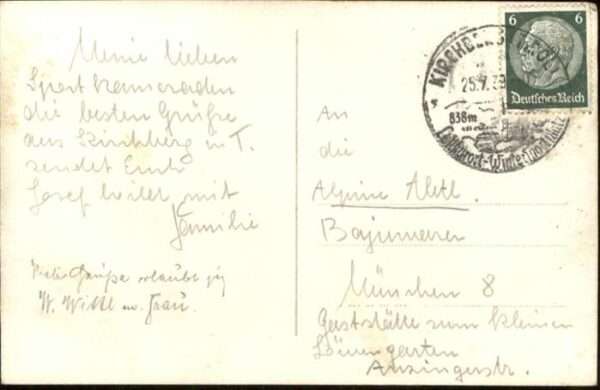 Meine lieben
Sportkameraden
die besten Grüße
aus Kirchberg in T.
sendet Euch
Josef Weiler mit
Familie
Viele Grüße erlaubt
W. Wittl u. Frau.
KIRCHBERG (TIROL)
25.7.39
838m
6 6
Deutsches Reich
An
die
Alpine Abtl.
Bajuwaren
München 8
Gaststätte zum kleinen
Löwengarten
Anzingerstr.